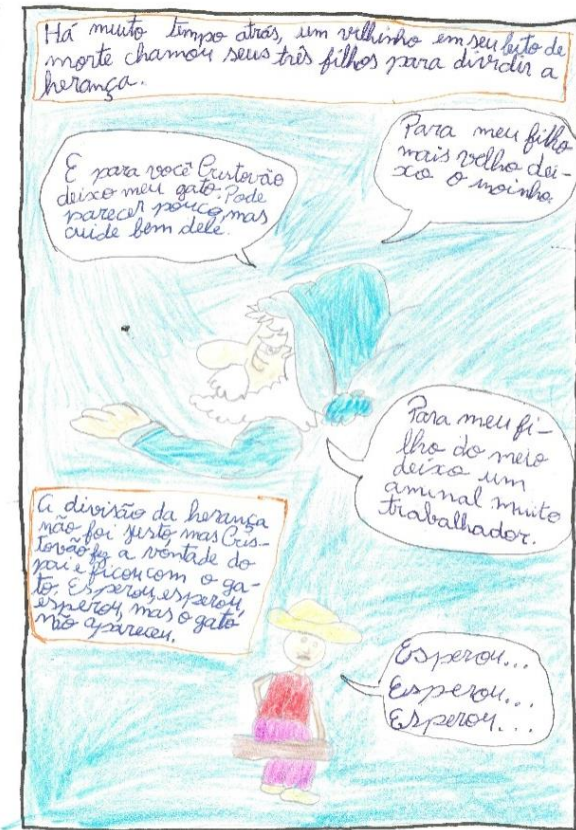 Há muito tempo atrás, um velhinho em seu leito de
morte chamou seus três filhos para dividir a
herança.
Para meu filho
mais velho dei-
xo o moinho.
E para você Cristovão
deixo meu gato. Pode
parecer pouco, mas
cuide bem dele.
Para meu fi-
lho do meio
deixo um
aminal muito
trabalhador.
A divisão da herança
não foi justo mas Cris-
tovão fez a vontade do
pai e ficou com o ga-
to. Esperou, esperou,
esperou, mas o gato
não apareceu.
Esperou...
Esperou...
Esperou...